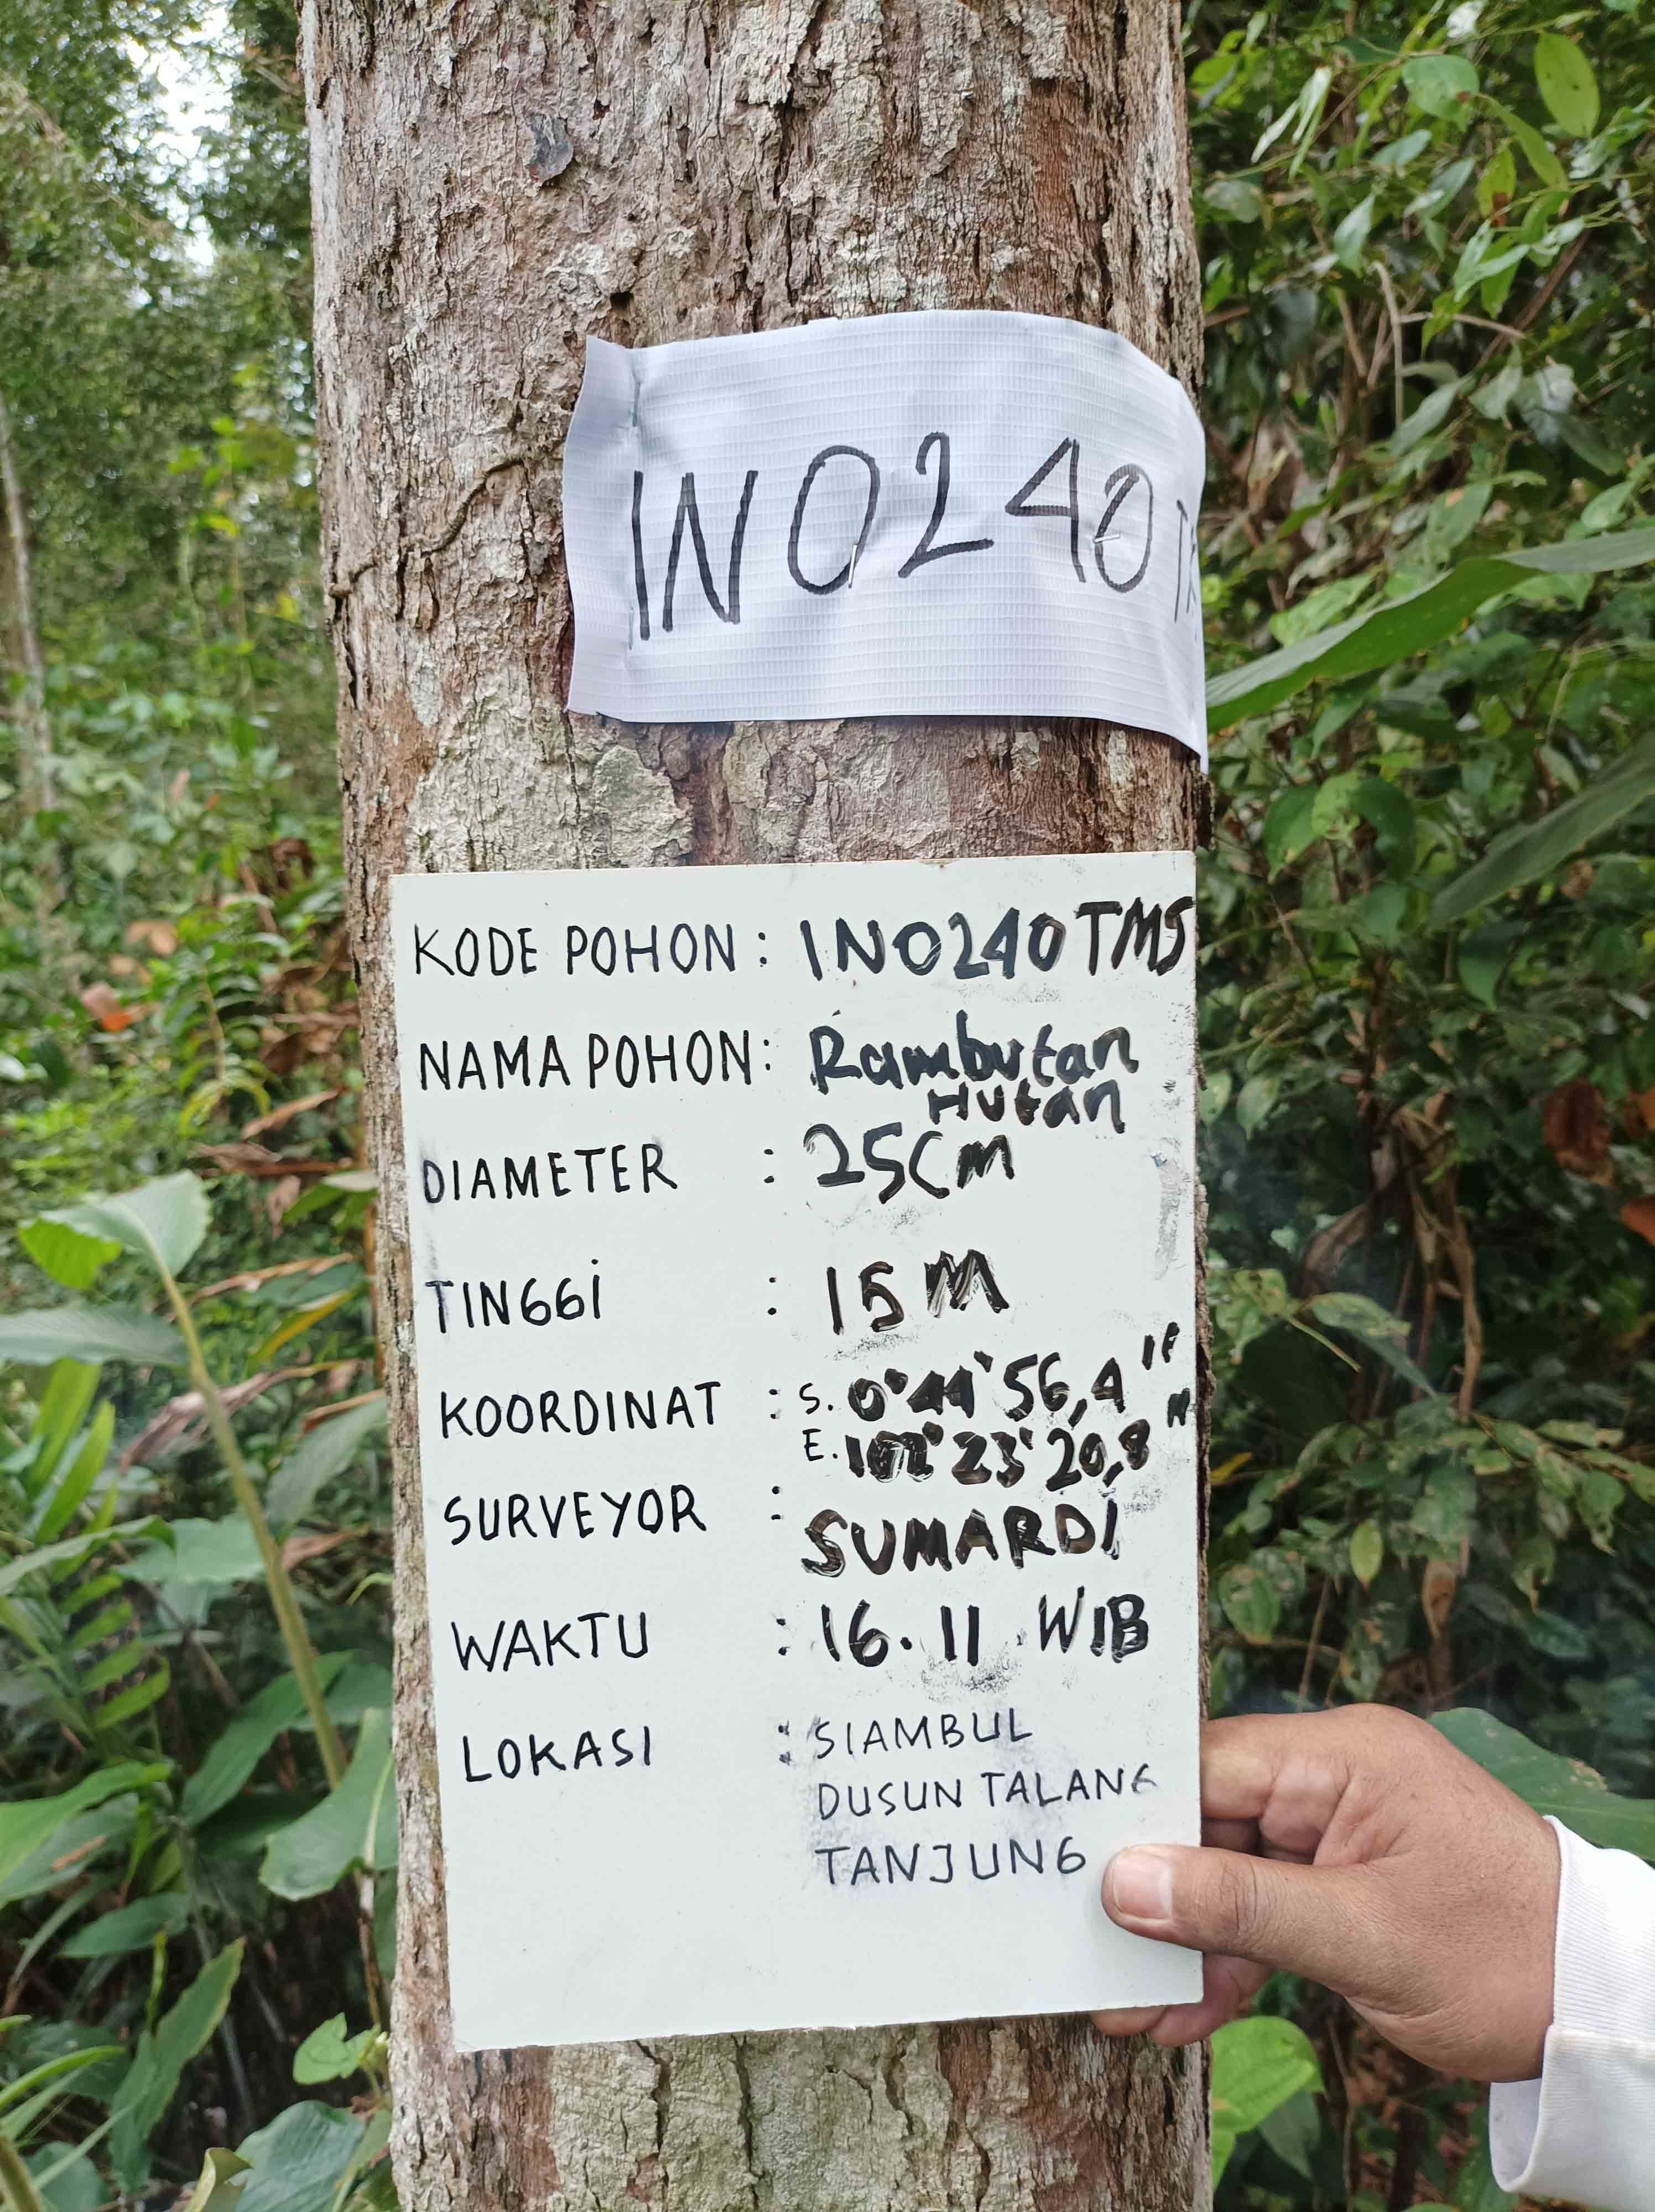 INO240
KODE POHON : INO240TMS
NAMA POHON : Rambutan
Hutan
DIAMETER : 25CM
TINGGi : 15 M
KOORDINAT : S. 0°44'56,4"
E. 102°23'20,8"
SURVEYOR : SUMARDi
WAKTU : 16.11 WIB
LOKASI : SIAMBUL
DUSUN TALANG
TANJUNG